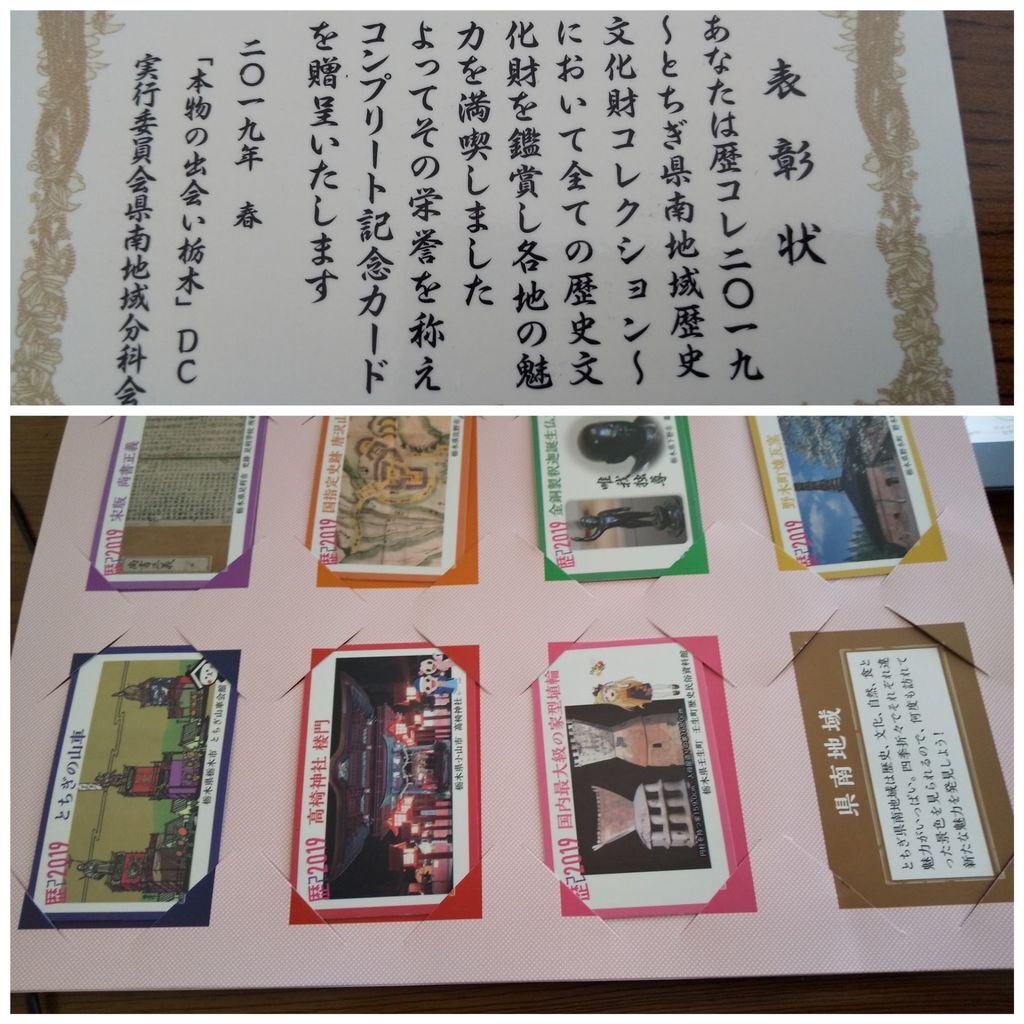 表彰状
あなたは歴コレ二〇一九
～とちぎ県南地域歴史
文化財コレクション～
において全ての歴史文
化財を鑑賞し各地の魅
力を満喫しました
よってその栄誉を称え
コンプリート記念カード
を贈呈いたします
二〇一九年 春
「本物の出会い栃木」DC
実行委員会県南地域分科会
歴コレ2019 宋版 尚書正義
尚書正義
歴コレ2019 国指定史跡 唐沢山
歴コレ2019 金銅製釈迦誕生仏
唯我独尊
歴コレ2019 野木町煉瓦窯
歴コレ2019 とちぎの山車
栃木県栃木市 とちぎ山車会館
歴コレ2019 高椅神社 楼門
栃木県小山市 高椅神社
歴コレ2019 国内最大級の家型埴輪
栃木県壬生町 壬生町歴史民俗資料館
県南地域
とちぎ県南地域は歴史、文化、自然、食と
魅力がいっぱい。四季折々でそれぞれ違
った景色を見られるので、何度も訪れて
新たな魅力を発見しよう！